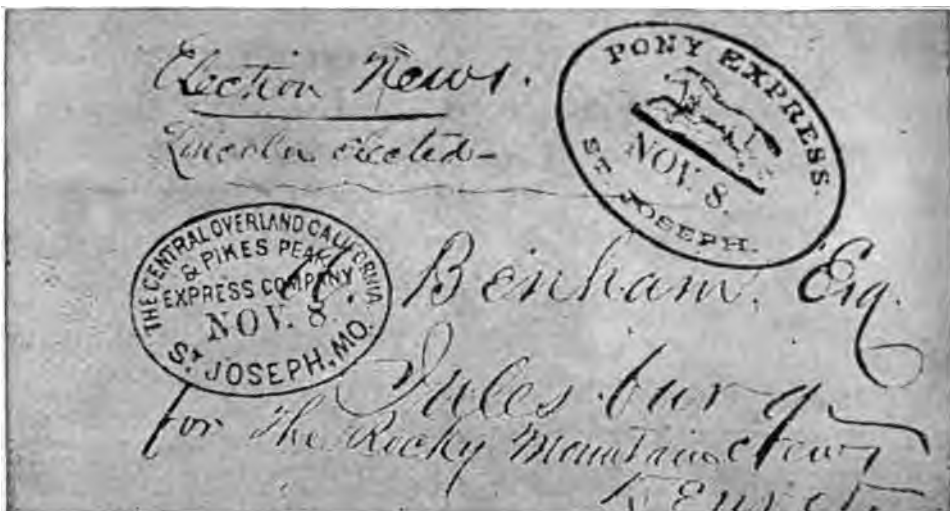 Election News.
Lincoln elected –
PONY EXPRESS.
NOV. 8.
ST. JOSEPH.
THE CENTRAL OVERLAND CALIFORNIA
& PIKES PEAK
EXPRESS COMPANY
NOV. 8.
ST. JOSEPH, MO.
Benham, Esq.
Julesburg
for The Rocky Mountain News